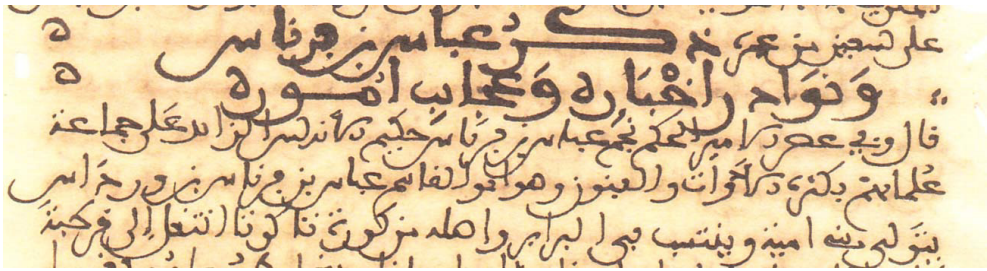 على تسعين من عمره ذكر عباس بن فرناس
ونوادر اخباره وعجايب اموره
قال وفي عصر الامير الحكم نجم عباس بن فرناس حكيم الاندلس الزايد على جماعة
علمايهم بكثرة الادوات والفنون وهو ابو القاسم عباس بن فرناس بن ورداس
يتولى بني امية وينتسب في البرابر واصله من كورة تاكرنا انتقل الى قرطبة